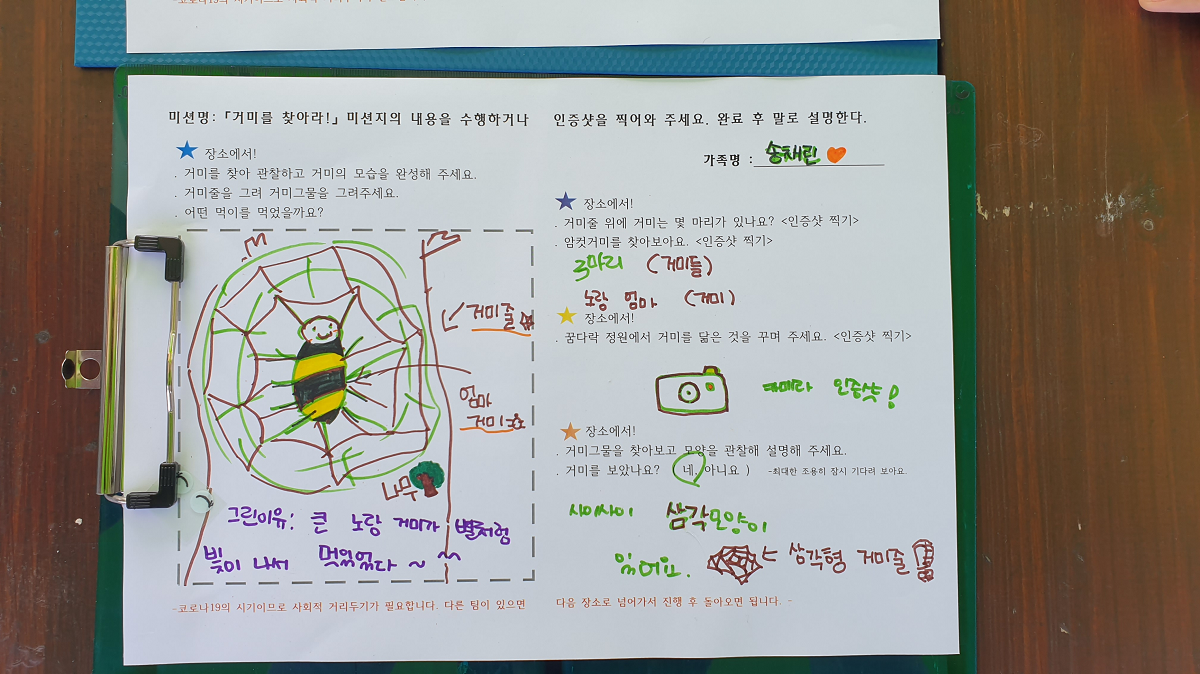 미션명: 「거미를 찾아라!」 미션지의 내용을 수행하거나
★ 장소에서!
. 거미를 찾아 관찰하고 거미의 모습을 완성해 주세요.
. 거미줄을 그려 거미그물을 그려주세요.
. 어떤 먹이를 먹었을까요?
거미줄
엄마
거미
나무
그린이유: 큰 노랑 거미가 별처럼
빛이 나서 멋있었다 ~ ~
-코로나19의 시기이므로 사회적 거리두기가 필요합니다. 다른 팀이 있으면
인증샷을 찍어와 주세요. 완료 후 말로 설명한다.
가족명 : 송채린
★ 장소에서!
. 거미줄 위에 거미는 몇 마리가 있나요? <인증샷 찍기>
. 암컷거미를 찾아보아요. <인증샷 찍기>
3마리 (거미들)
노랑 엄마 (거미)
★ 장소에서!
. 꿈다락 정원에서 거미를 닮은 것을 꾸며 주세요. <인증샷 찍기>
카메라 인증샷!
★ 장소에서!
. 거미그물을 찾아보고 모양을 관찰해 설명해 주세요.
. 거미를 보았나요? ( 네, 아니요 ) -최대한 조용히 잠시 기다려 보아요.
사이사이 삼각모양이
있어요. 삼각형 거미줄
다음 장소로 넘어가서 진행 후 돌아오면 됩니다. -